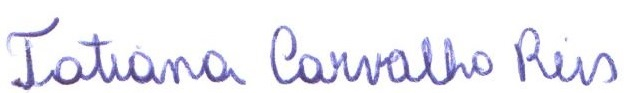 Tatiana Carvalho Reis